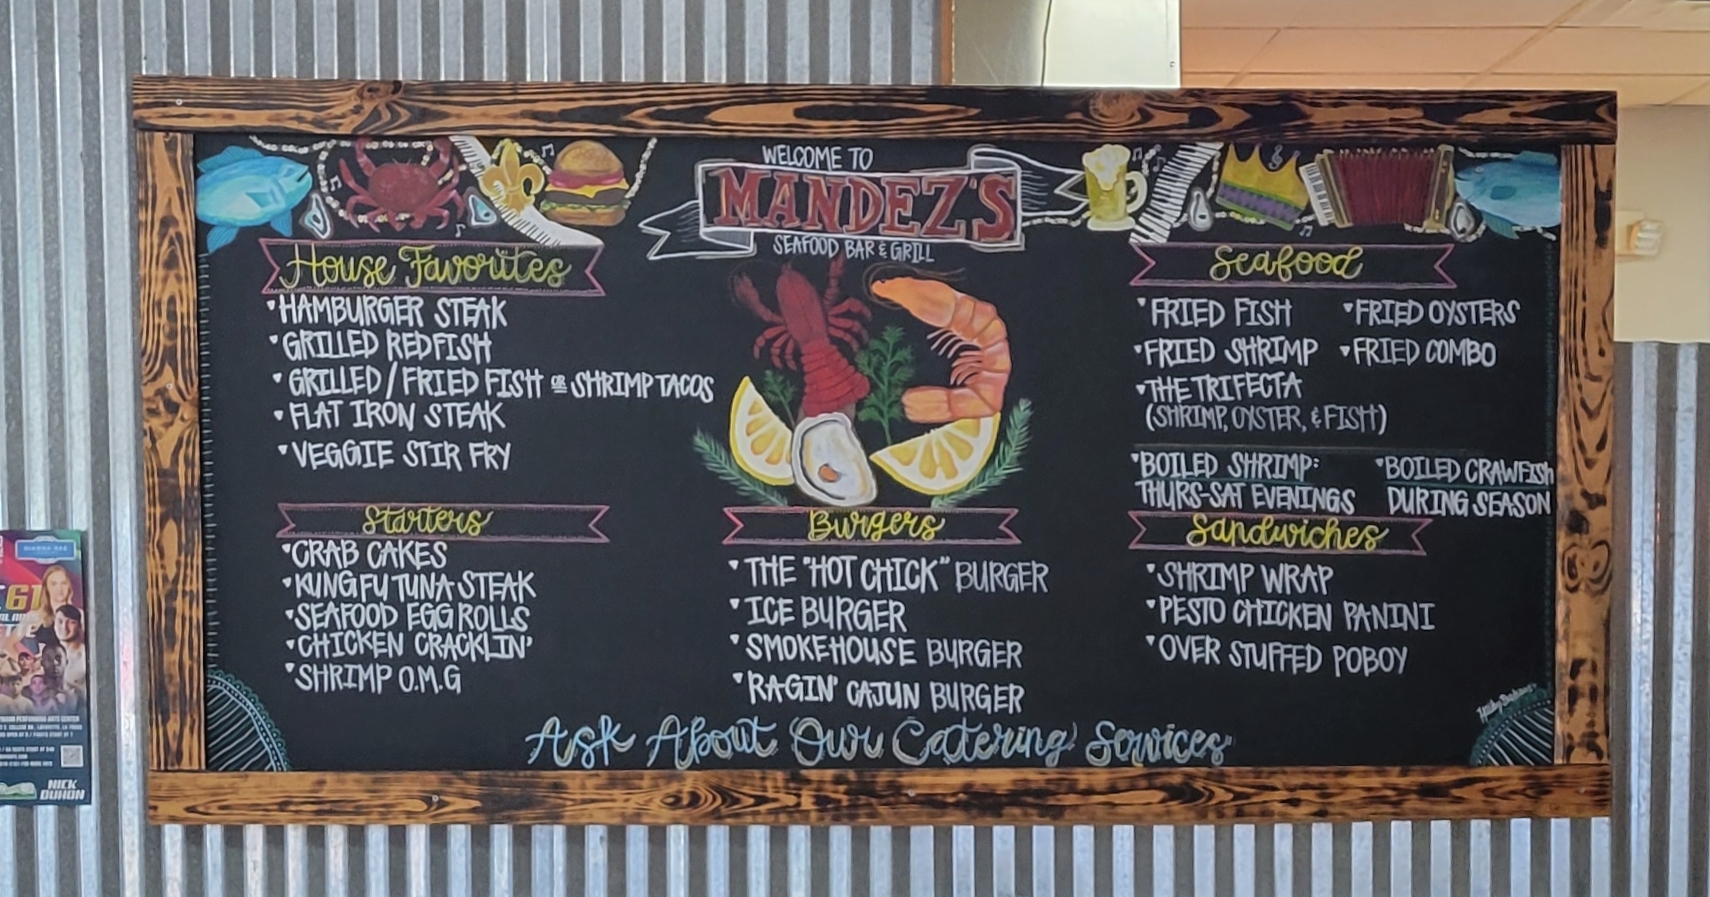 WELCOME TO
MANDEZ'S
SEAFOOD BAR & GRILL
House Favorites
HAMBURGER STEAK
GRILLED REDFISH
GRILLED / FRIED FISH OR SHRIMP TACOS
FLAT IRON STEAK
VEGGIE STIR FRY
Starters
CRAB CAKES
KUNG FU TUNA STEAK
SEAFOOD EGG ROLLS
CHICKEN CRACKLIN'
SHRIMP O.M.G
Burgers
THE "HOT CHICK" BURGER
ICE BURGER
SMOKEHOUSE BURGER
RAGIN' CAJUN BURGER
Seafood
FRIED FISH
FRIED OYSTERS
FRIED SHRIMP
FRIED COMBO
THE TRIFECTA
(SHRIMP, OYSTER, & FISH)
BOILED SHRIMP:
THURS-SAT EVENINGS
BOILED CRAWFISH
DURING SEASON
Sandwiches
SHRIMP WRAP
PESTO CHICKEN PANINI
OVER STUFFED POBOY
Ask About Our Catering Services
61
NICK
DUHON